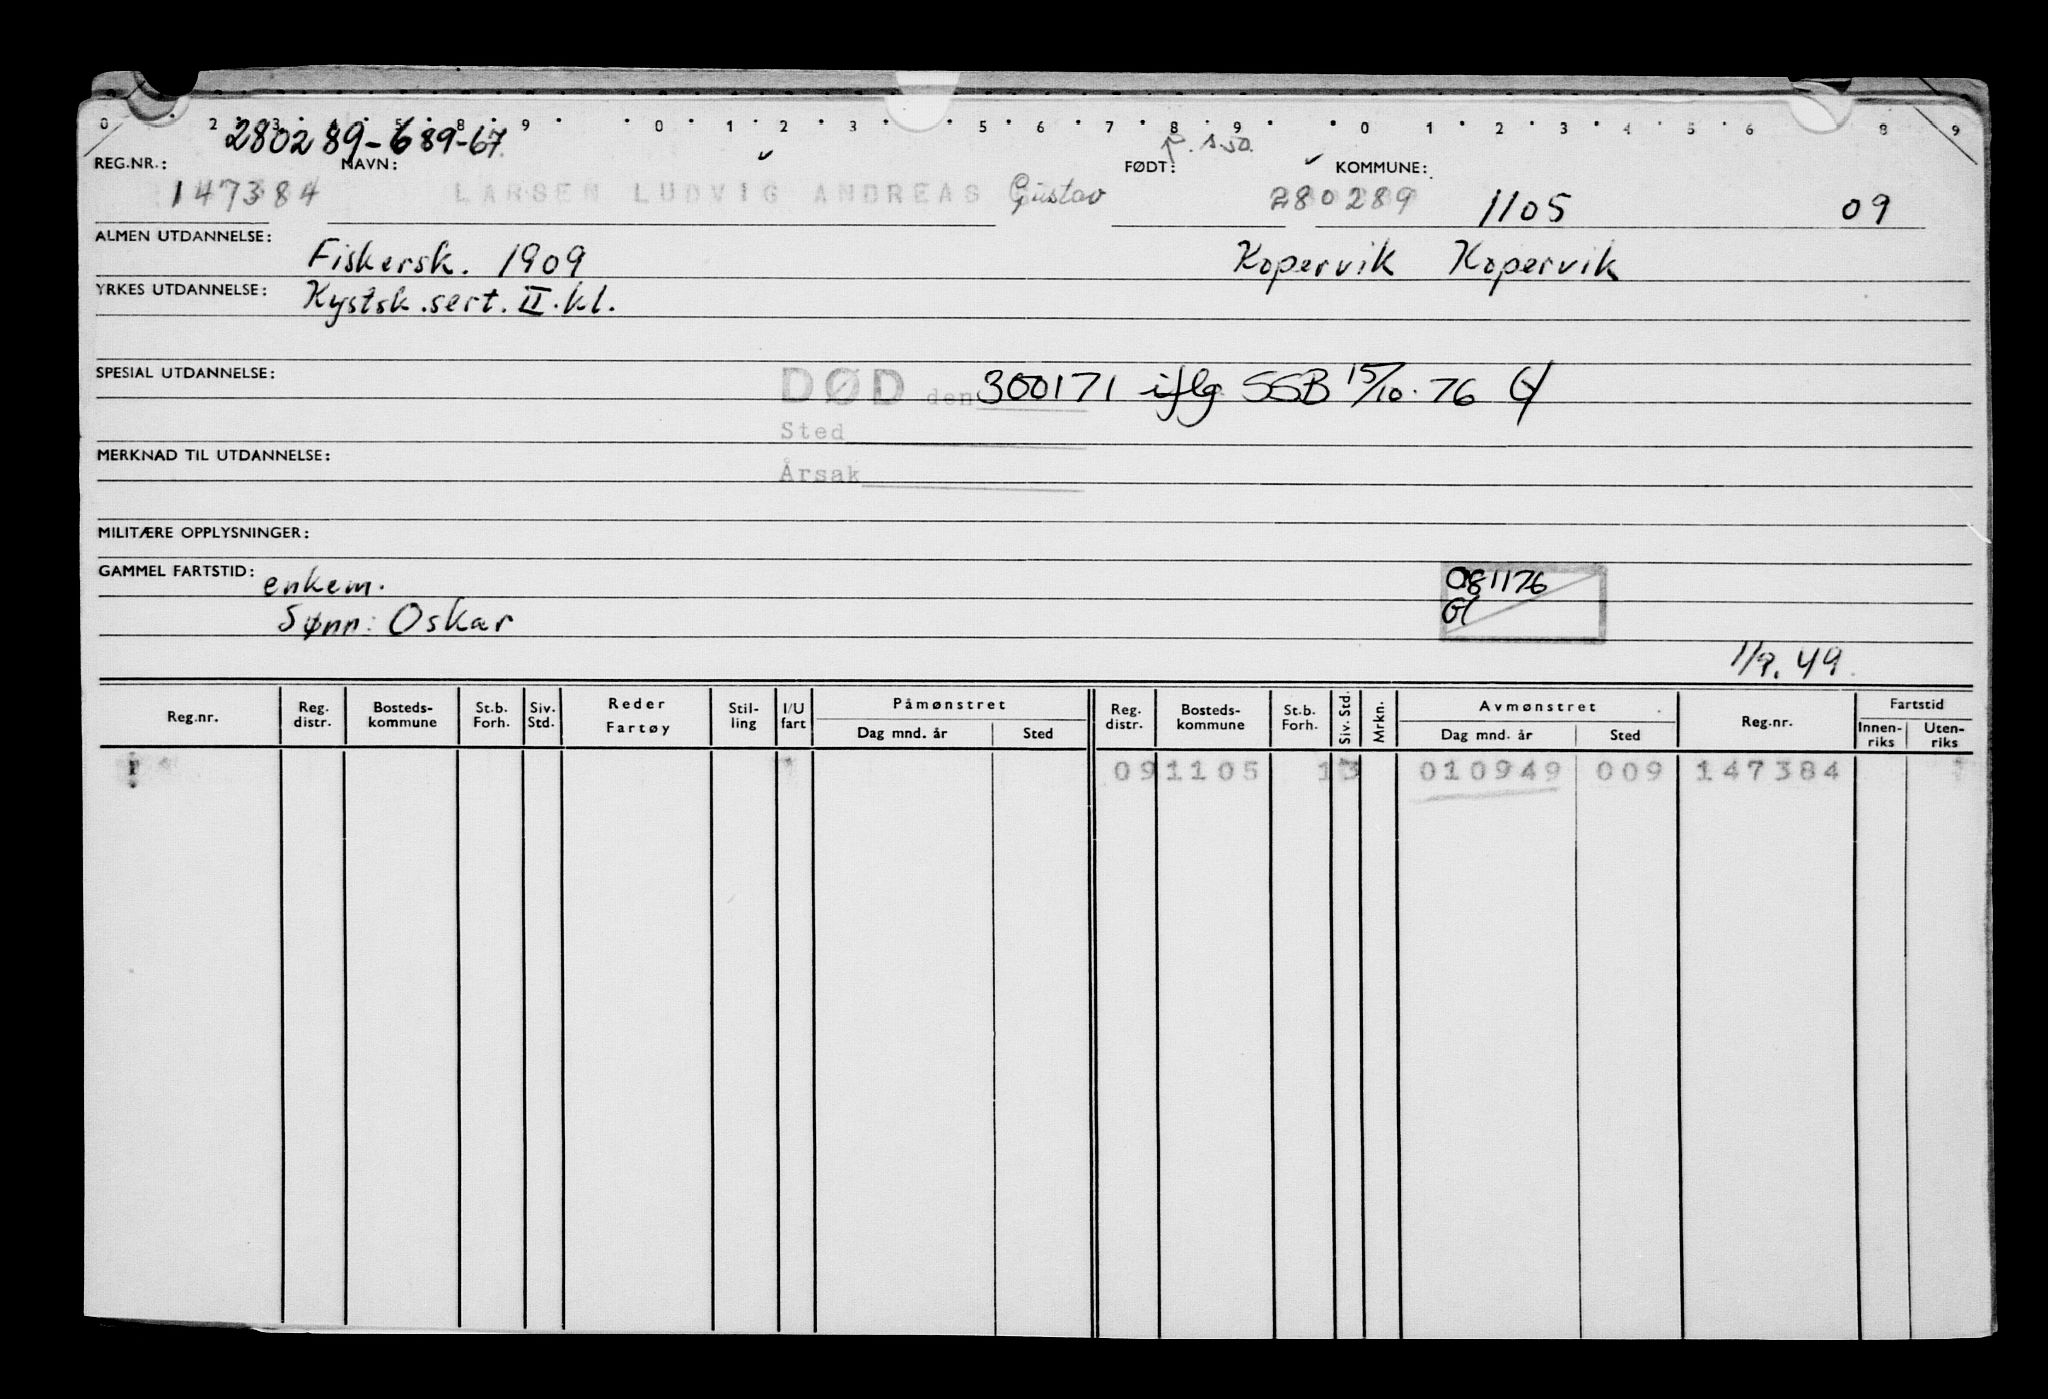 0 2 3 5 8 9 0 1 2 3 5 6 7 8 9 0 1 2 3 4 5 6 8 9
280289-689-67
REG.NR.: NAVN: FØDT: KOMMUNE:
147384 LARSEN LUDVIG ANDREAS Gustav 280289 1105 09
ALMEN UTDANNELSE: Fiskersk. 1909 Kopervik Kopervik
YRKES UTDANNELSE: Kystsk.sert. II.kl.
SPESIAL UTDANNELSE: DØD den 300171 iflg SSB 15/10.76
Sted
MERKNAD TIL UTDANNELSE:
Årsak
MILITÆRE OPPLYSNINGER:
GAMMEL FARTSTID: enkem. 081176
Sønn: Oskar
1/9.49.
Reg.nr. Reg. distr. Bosteds-kommune St.b. Forh. Siv. Std. Reder Fartøy Stil-ling I/U fart Påmønstret Dag mnd. år Sted Reg. distr. Bosteds-kommune St.b. Forh. Siv. Std. Mrkn. Avmønstret Dag mnd. år Sted Reg.nr. Fartstid Innen-riks Uten-riks
091105 13 010949 009 147384